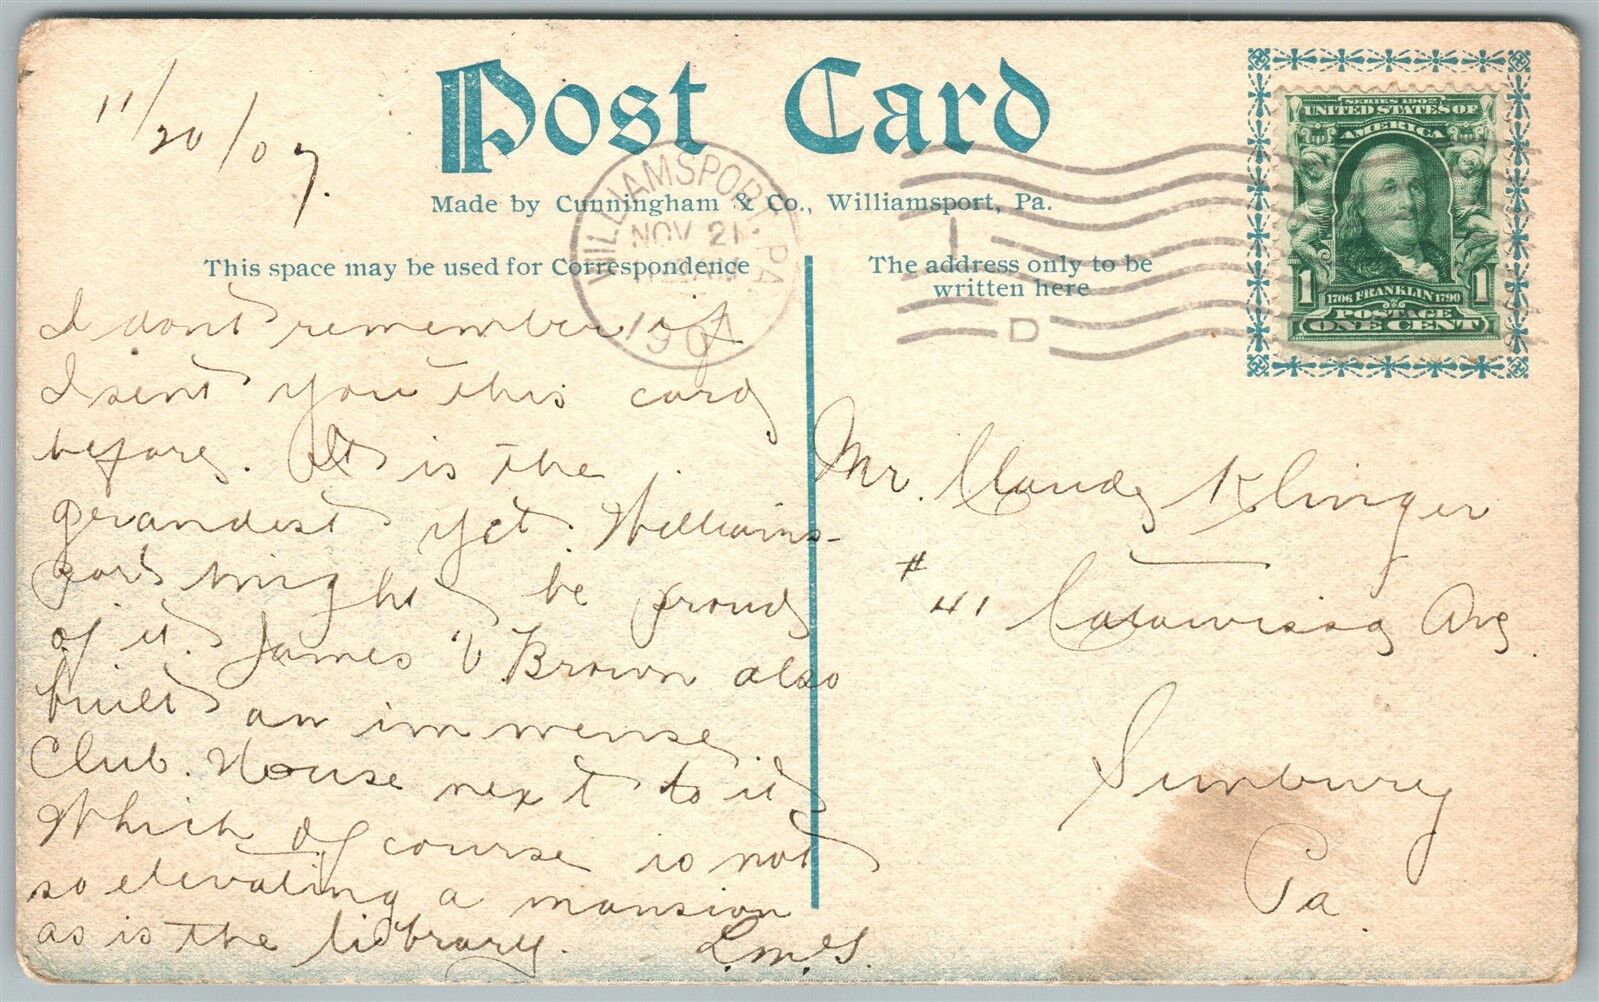 11/20/07.
Post Card
Made by Cunningham & Co., Williamsport, Pa.
WILLIAMSPORT, PA.
NOV 21
1907
D
SERIES 1902
UNITED STATES OF
AMERICA
1 1706 FRANKLIN 1790 1
POSTAGE
ONE CENT
This space may be used for Correspondence
I dont remember if
I sent you this card
before. It is the
grandest yet. Williams-
port might be proud
of it. James V Brown also
built an immense
Club. House next to it
Which of course is not
so elevating a mansion
as is the library. L.M.S.
The address only to be
written here
Mr. Claude Klinger
# 41 Catawissa Ave.
Sunbury
Pa